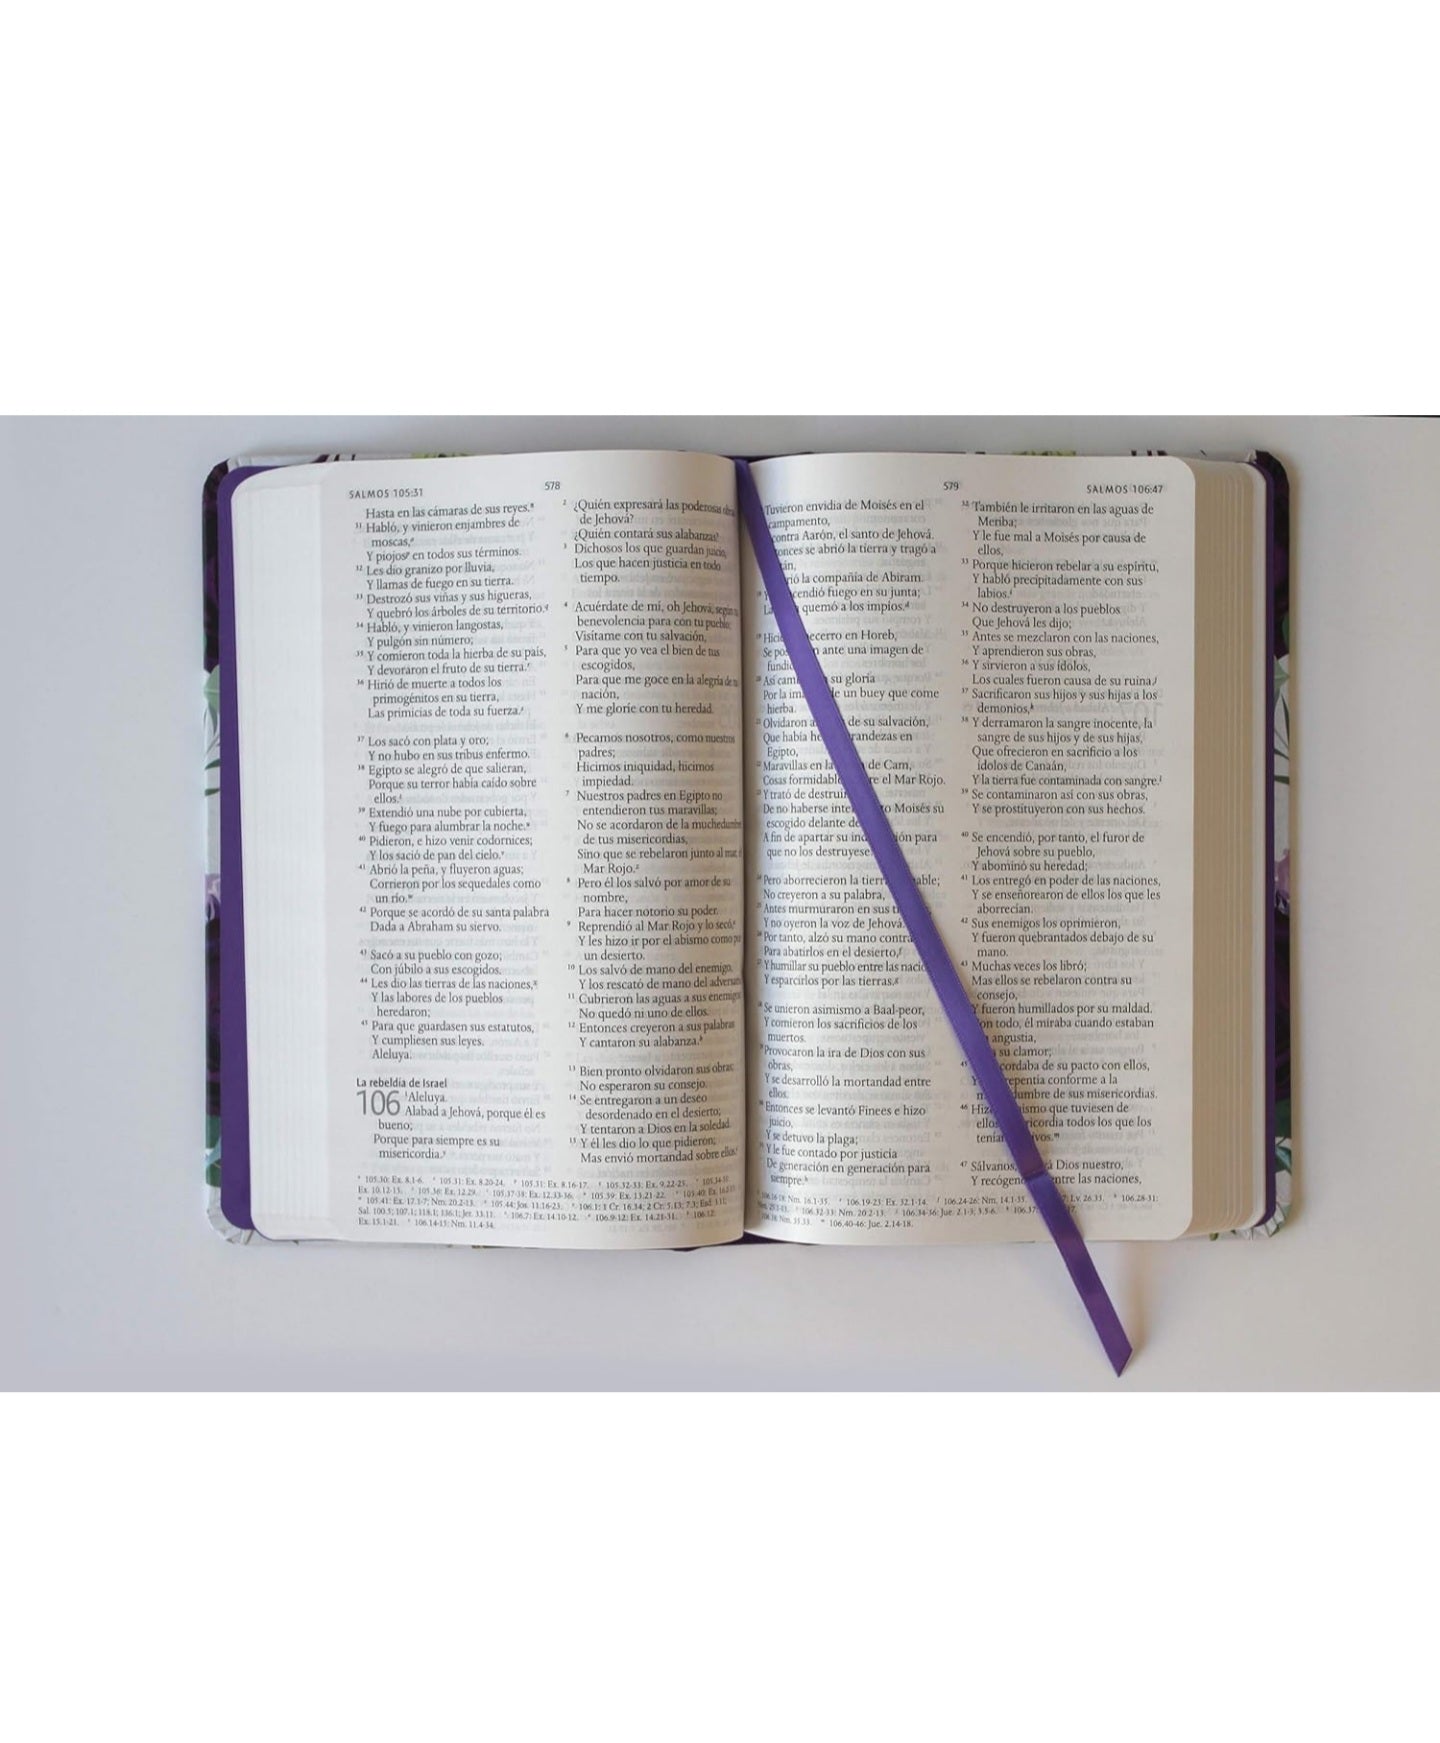 SALMOS 105:31
578
Hasta en las cámaras de sus reyes.
31 Habló, y vinieron enjambres de
moscas,
Y piojos en todos sus términos.
32 Les dio granizo por lluvia,
Y llamas de fuego en su tierra.
33 Destrozó sus viñas y sus higueras,
Y quebró los árboles de su territorio.
34 Habló, y vinieron langostas,
Y pulgón sin número;
35 Y comieron toda la hierba de su país,
Y devoraron el fruto de su tierra.
36 Hirió de muerte a todos los
primogénitos en su tierra,
Las primicias de toda su fuerza.
37 Los sacó con plata y oro;
Y no hubo en sus tribus enfermo.
38 Egipto se alegró de que salieran,
Porque su terror había caído sobre
ellos.
39 Extendió una nube por cubierta,
Y fuego para alumbrar la noche.
40 Pidieron, e hizo venir codornices;
Y los sació de pan del cielo.
41 Abrió la peña, y fluyeron aguas;
Corrieron por los sequedales como
un río.
42 Porque se acordó de su santa palabra
Dada a Abraham su siervo.
43 Sacó a su pueblo con gozo;
Con júbilo a sus escogidos.
44 Les dio las tierras de las naciones,
Y las labores de los pueblos
heredaron;
45 Para que guardasen sus estatutos,
Y cumpliesen sus leyes.
Aleluya.
La rebeldía de Israel
106 1 Aleluya.
Alabad a Jehová, porque él es
bueno;
Porque para siempre es su
misericordia.
2 ¿Quién expresará las poderosas
de Jehová?
¿Quién contará sus alabanzas?
3 Dichosos los que guardan juicio,
Los que hacen justicia en todo
tiempo.
4 Acuérdate de mí, oh Jehová, según
benevolencia para con tu pueblo;
Visítame con tu salvación,
5 Para que yo vea el bien de tus
escogidos,
Para que me goce en la alegría de
nación,
Y me gloríe con tu heredad.
6 Pecamos nosotros, como nuestros
padres;
Hicimos iniquidad, hicimos
impiedad.
7 Nuestros padres en Egipto no
entendieron tus maravillas;
No se acordaron de la muchedumbre
de tus misericordias,
Sino que se rebelaron junto al mar, el
Mar Rojo.
8 Pero él los salvó por amor de su
nombre,
Para hacer notorio su poder.
9 Reprendió al Mar Rojo y lo secó,
Y les hizo ir por el abismo como por
un desierto.
10 Los salvó de mano del enemigo,
Y los rescató de mano del
11 Cubrieron las aguas a sus enemigos;
No quedó ni uno de ellos.
12 Entonces creyeron a sus palabras
Y cantaron su alabanza.
13 Bien pronto olvidaron sus obras;
No esperaron su consejo.
14 Se entregaron a un deseo
desordenado en el desierto;
Y tentaron a Dios en la soledad.
15 Y él les dio lo que pidieron;
Mas envió mortandad sobre ellos.
105.30: Ex. 8.1-6. 105.31: Ex. 8.20-24. 105.31: Ex. 8.16-17. 105.32-33: Ex. 9.22-25.
Ex. 10.12-15. 105.36: Ex. 12.29. 105.37-38: Ex. 12.33-36. 105.39: Ex. 13.21-22.
105.41: Ex. 17.1-7; Nm. 20.2-13. 105.44: Jos. 11.16-23. 106.1: 1 Cr. 16.34; 2 Cr. 5.13; 7.3; Esd. 3.11;
Sal. 100.5; 107.1; 118.1; 136.1; Jer. 33.11. 106.7: Ex. 14.10-12. 106.9-12: Ex. 14.21-31. 106.12:
Ex. 15.1-21. 106.14-15: Nm. 11.4-34.
579
SALMOS 106:47
Tuvieron envidia de Moisés en el
campamento,
contra Aarón, el santo de Jehová.
se abrió la tierra y tragó a
la compañía de Abiram.
fuego en su junta;
quemó a los impíos.
becerro en Horeb,
Se ante una imagen de
Así su gloria
Por la de un buey que come
hierba.
Olvidaron de su salvación,
Que había grandezas en
Egipto,
Maravillas en la de Cam,
Cosas formidables el Mar Rojo.
Y trató de
De no haberse Moisés su
escogido delante de
A fin de apartar su para
que no los destruyese.
Pero aborrecieron la tierra
No creyeron a su palabra,
Antes murmuraron en sus
Y no oyeron la voz de Jehová.
Por tanto, alzó su mano contra
Para abatirlos en el desierto,
Y humillar su pueblo entre las
Y esparcirlos por las tierras.
Se unieron asimismo a Baal-peor,
Y comieron los sacrificios de los
muertos.
Provocaron la ira de Dios con sus
obras,
Y se desarrolló la mortandad entre
ellos.
Entonces se levantó Finees e hizo
juicio,
Y se detuvo la plaga;
Y le fue contado por justicia
De generación en generación para
siempre.
32 También le irritaron en las aguas de
Meriba;
Y le fue mal a Moisés por causa de
ellos,
33 Porque hicieron rebelar a su espíritu,
Y habló precipitadamente con sus
labios.
34 No destruyeron a los pueblos
Que Jehová les dijo;
35 Antes se mezclaron con las naciones,
Y aprendieron sus obras,
36 Y sirvieron a sus ídolos,
Los cuales fueron causa de su ruina.
37 Sacrificaron sus hijos y sus hijas a los
demonios,
38 Y derramaron la sangre inocente, la
sangre de sus hijos y de sus hijas,
Que ofrecieron en sacrificio a los
ídolos de Canaán,
Y la tierra fue contaminada con sangre.
39 Se contaminaron así con sus obras,
Y se prostituyeron con sus hechos.
40 Se encendió, por tanto, el furor de
Jehová sobre su pueblo,
Y abominó su heredad;
41 Los entregó en poder de las naciones,
Y se enseñorearon de ellos los que les
aborrecían.
42 Sus enemigos los oprimieron,
Y fueron quebrantados debajo de su
mano.
43 Muchas veces los libró;
Mas ellos se rebelaron contra su
consejo,
Y fueron humillados por su maldad.
todo, él miraba cuando estaban
angustia,
su clamor;
45 de su pacto con ellos,
conforme a la
de sus misericordias.
46 que tuviesen de
todos los que los
47 Sálvanos, Dios nuestro,
Y entre las naciones,
106.16-18: Nm. 16.1-35. 106.19-23: Ex. 32.1-14. 106.24-26: Nm. 14.1-35. Lv. 26.33. 106.28-31:
106.32-33: Nm. 20.2-13. 106.34-36: Jue. 2.1-3; 3.5-6.
106.40-46: Jue. 2.14-18.